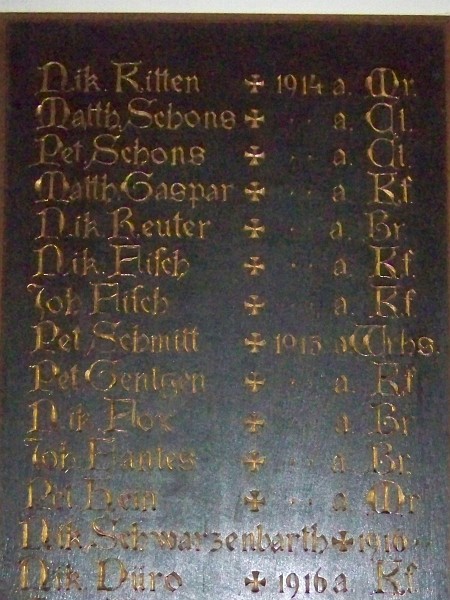 Nik. Ritten ✠ 1914 a. Mr.
Matth. Schons ✠ · · a. Cl.
Pet. Schons ✠ · · a. Cl.
Matth. Gaspar ✠ · · a. Kf.
Nik. Reuter ✠ · · a. Br.
Nik. Flisch ✠ · · a. Kf.
Joh. Flisch ✠ · · a. Kf.
Pet. Schmitt ✠ 1915 a. Wrhs.
Pet. Gentgen ✠ · · a. Kf.
Nik. Flox ✠ · · a. Br.
Joh. ✠ · · a. Br.
Pet. Hein ✠ · · a. Mr.
Nik. Schwarzenbarth ✠ 1916 · ·
Nik. Düro ✠ 1916 a. Kf.